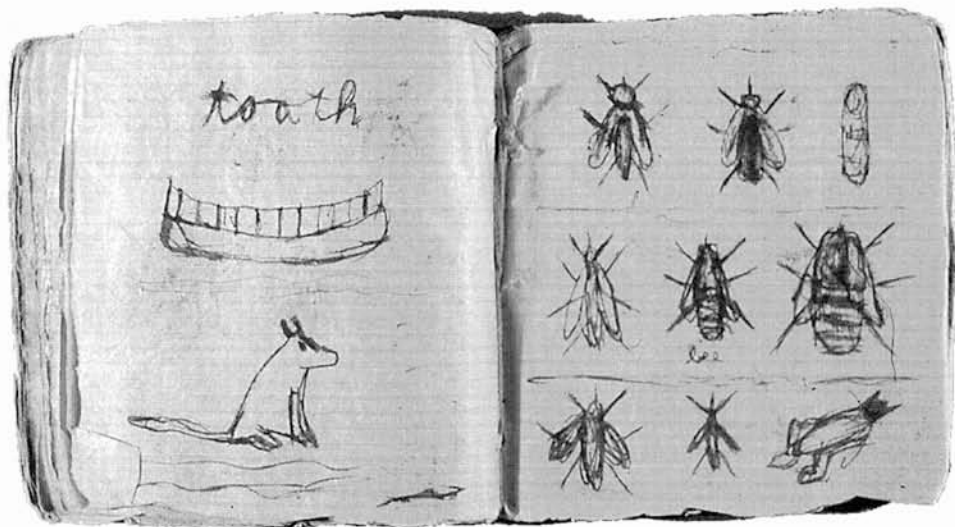 toath
bee